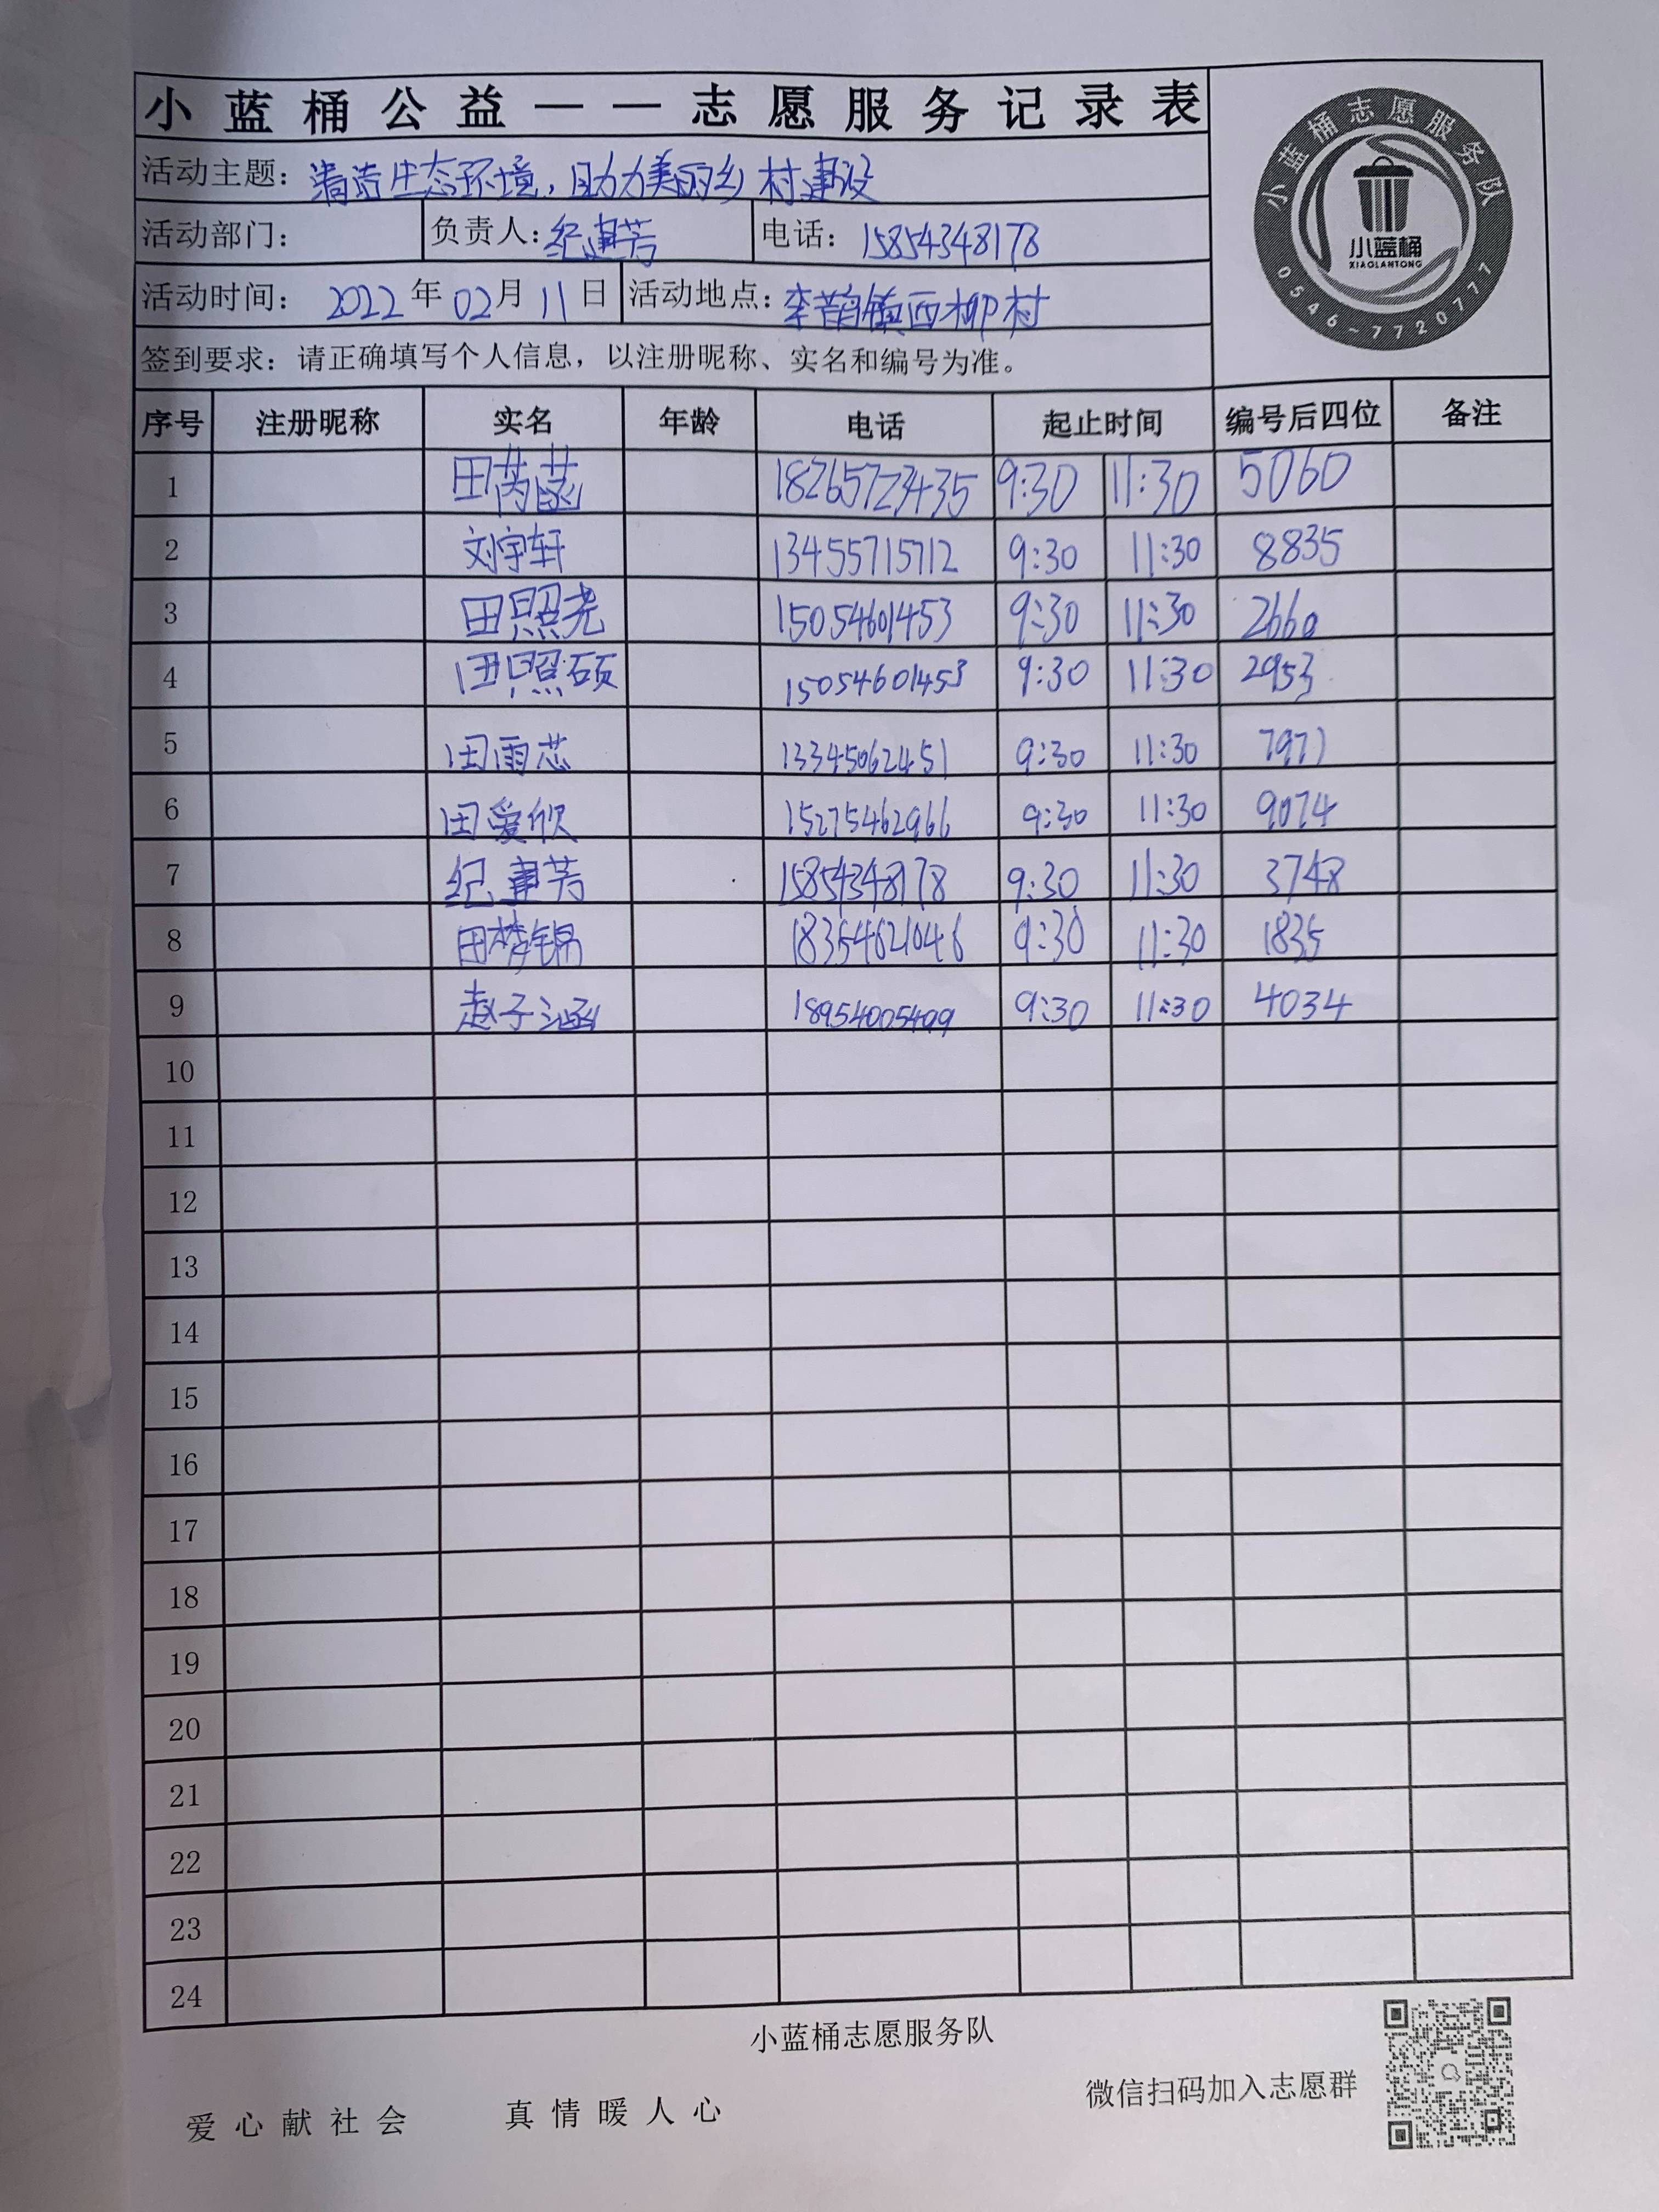 小蓝桶公益——志愿服务记录表
小蓝桶志愿服务队
小蓝桶
XIAOLANTONG
0546-7720777
活动主题：清洁生态环境，助力美丽乡村建设
活动部门： 负责人：纪建芳 电话：15854348178
活动时间：2022年02月11日 活动地点：李鹊镇西柳村
签到要求：请正确填写个人信息，以注册昵称、实名和编号为准。
序号 注册昵称 实名 年龄 电话 起止时间 编号后四位 备注
1 田芮菡 18265723435 9:30 11:30 5060
2 刘宇轩 13455715712 9:30 11:30 8835
3 田照尧 15054601453 9:30 11:30 2660
4 田照硕 15054601453 9:30 11:30 2953
5 田雨芯 13345062451 9:30 11:30 7971
6 田爱欣 15275462966 9:30 11:30 9074
7 纪建芳 15854348178 9:30 11:30 3748
8 田梦锦 18354621046 9:30 11:30 1835
9 赵子涵 18954005409 9:30 11:30 4034
10
11
12
13
14
15
16
17
18
19
20
21
22
23
24
小蓝桶志愿服务队
微信扫码加入志愿群
爱心献社会 真情暖人心